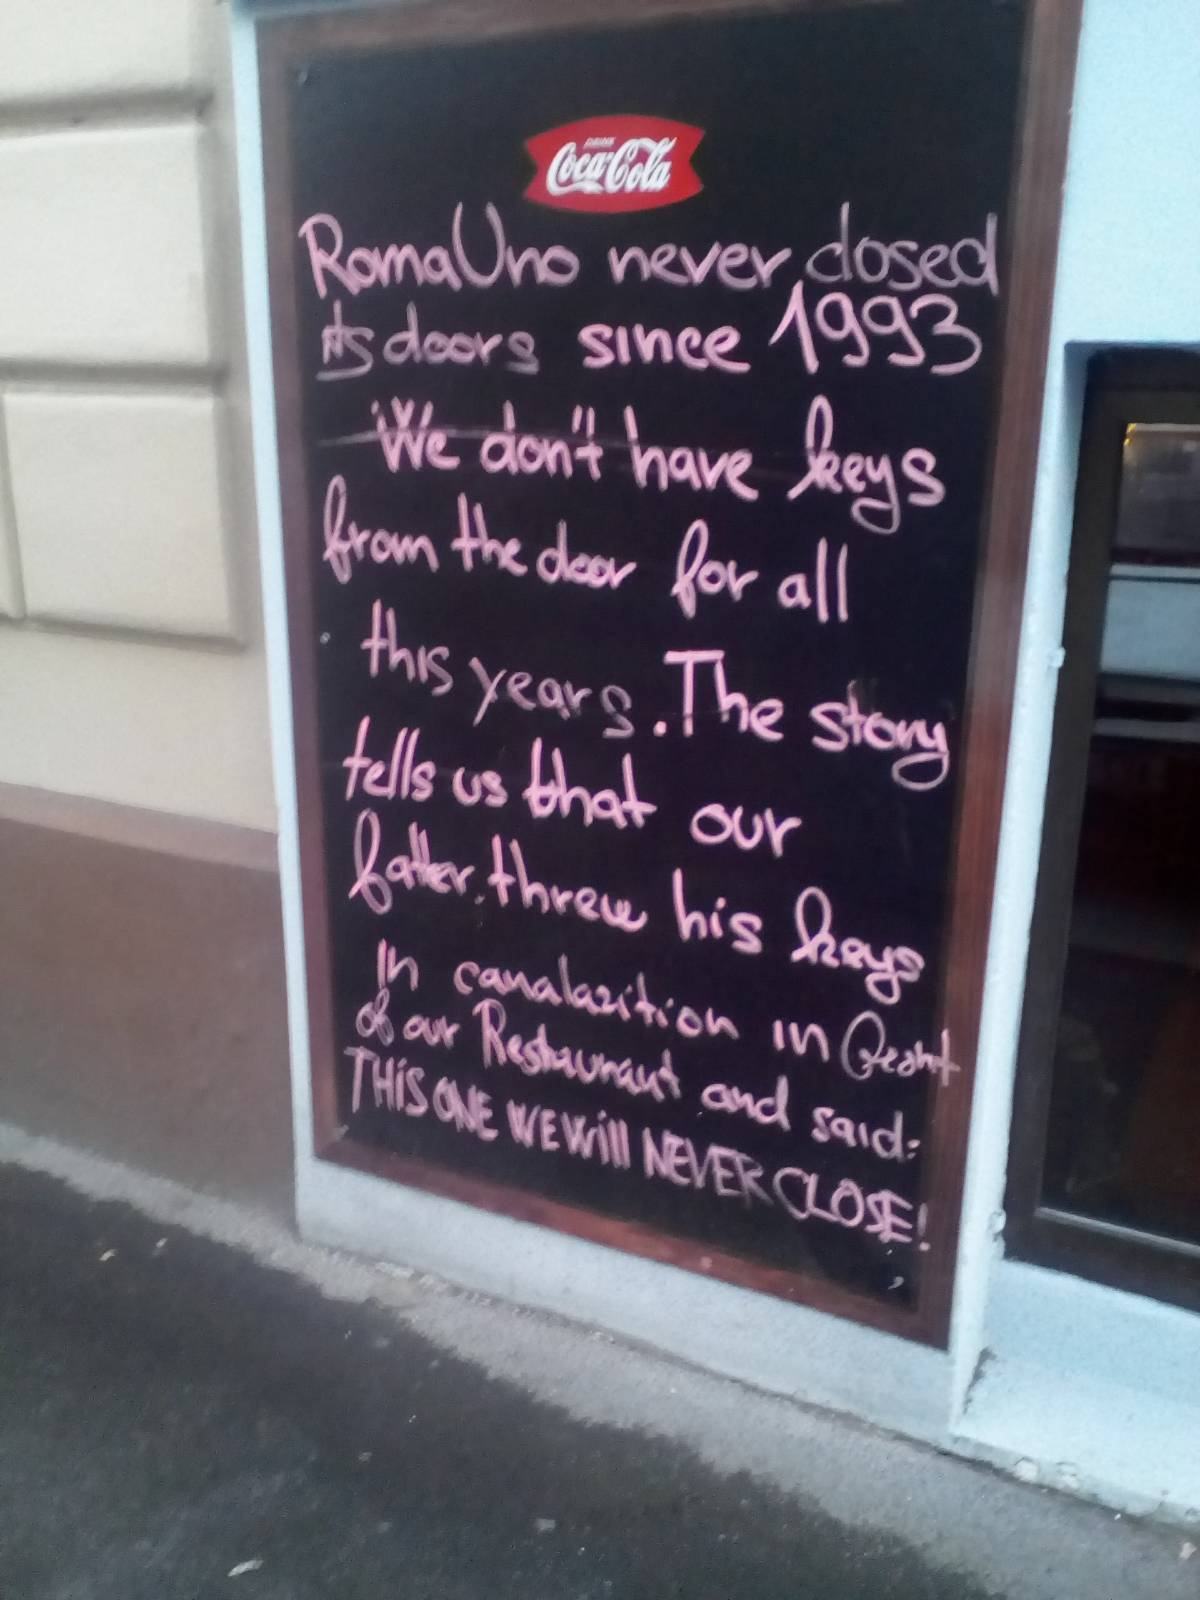 DRINK
Coca-Cola
RomaUno never closed
its doors since 1993
We don't have keys
from the door for all
this years. The story
tells us that our
fatter. threw his keys
In canalazition in
of our Restauraut and said:
THIS ONE WE WILL NEVER CLOSE!